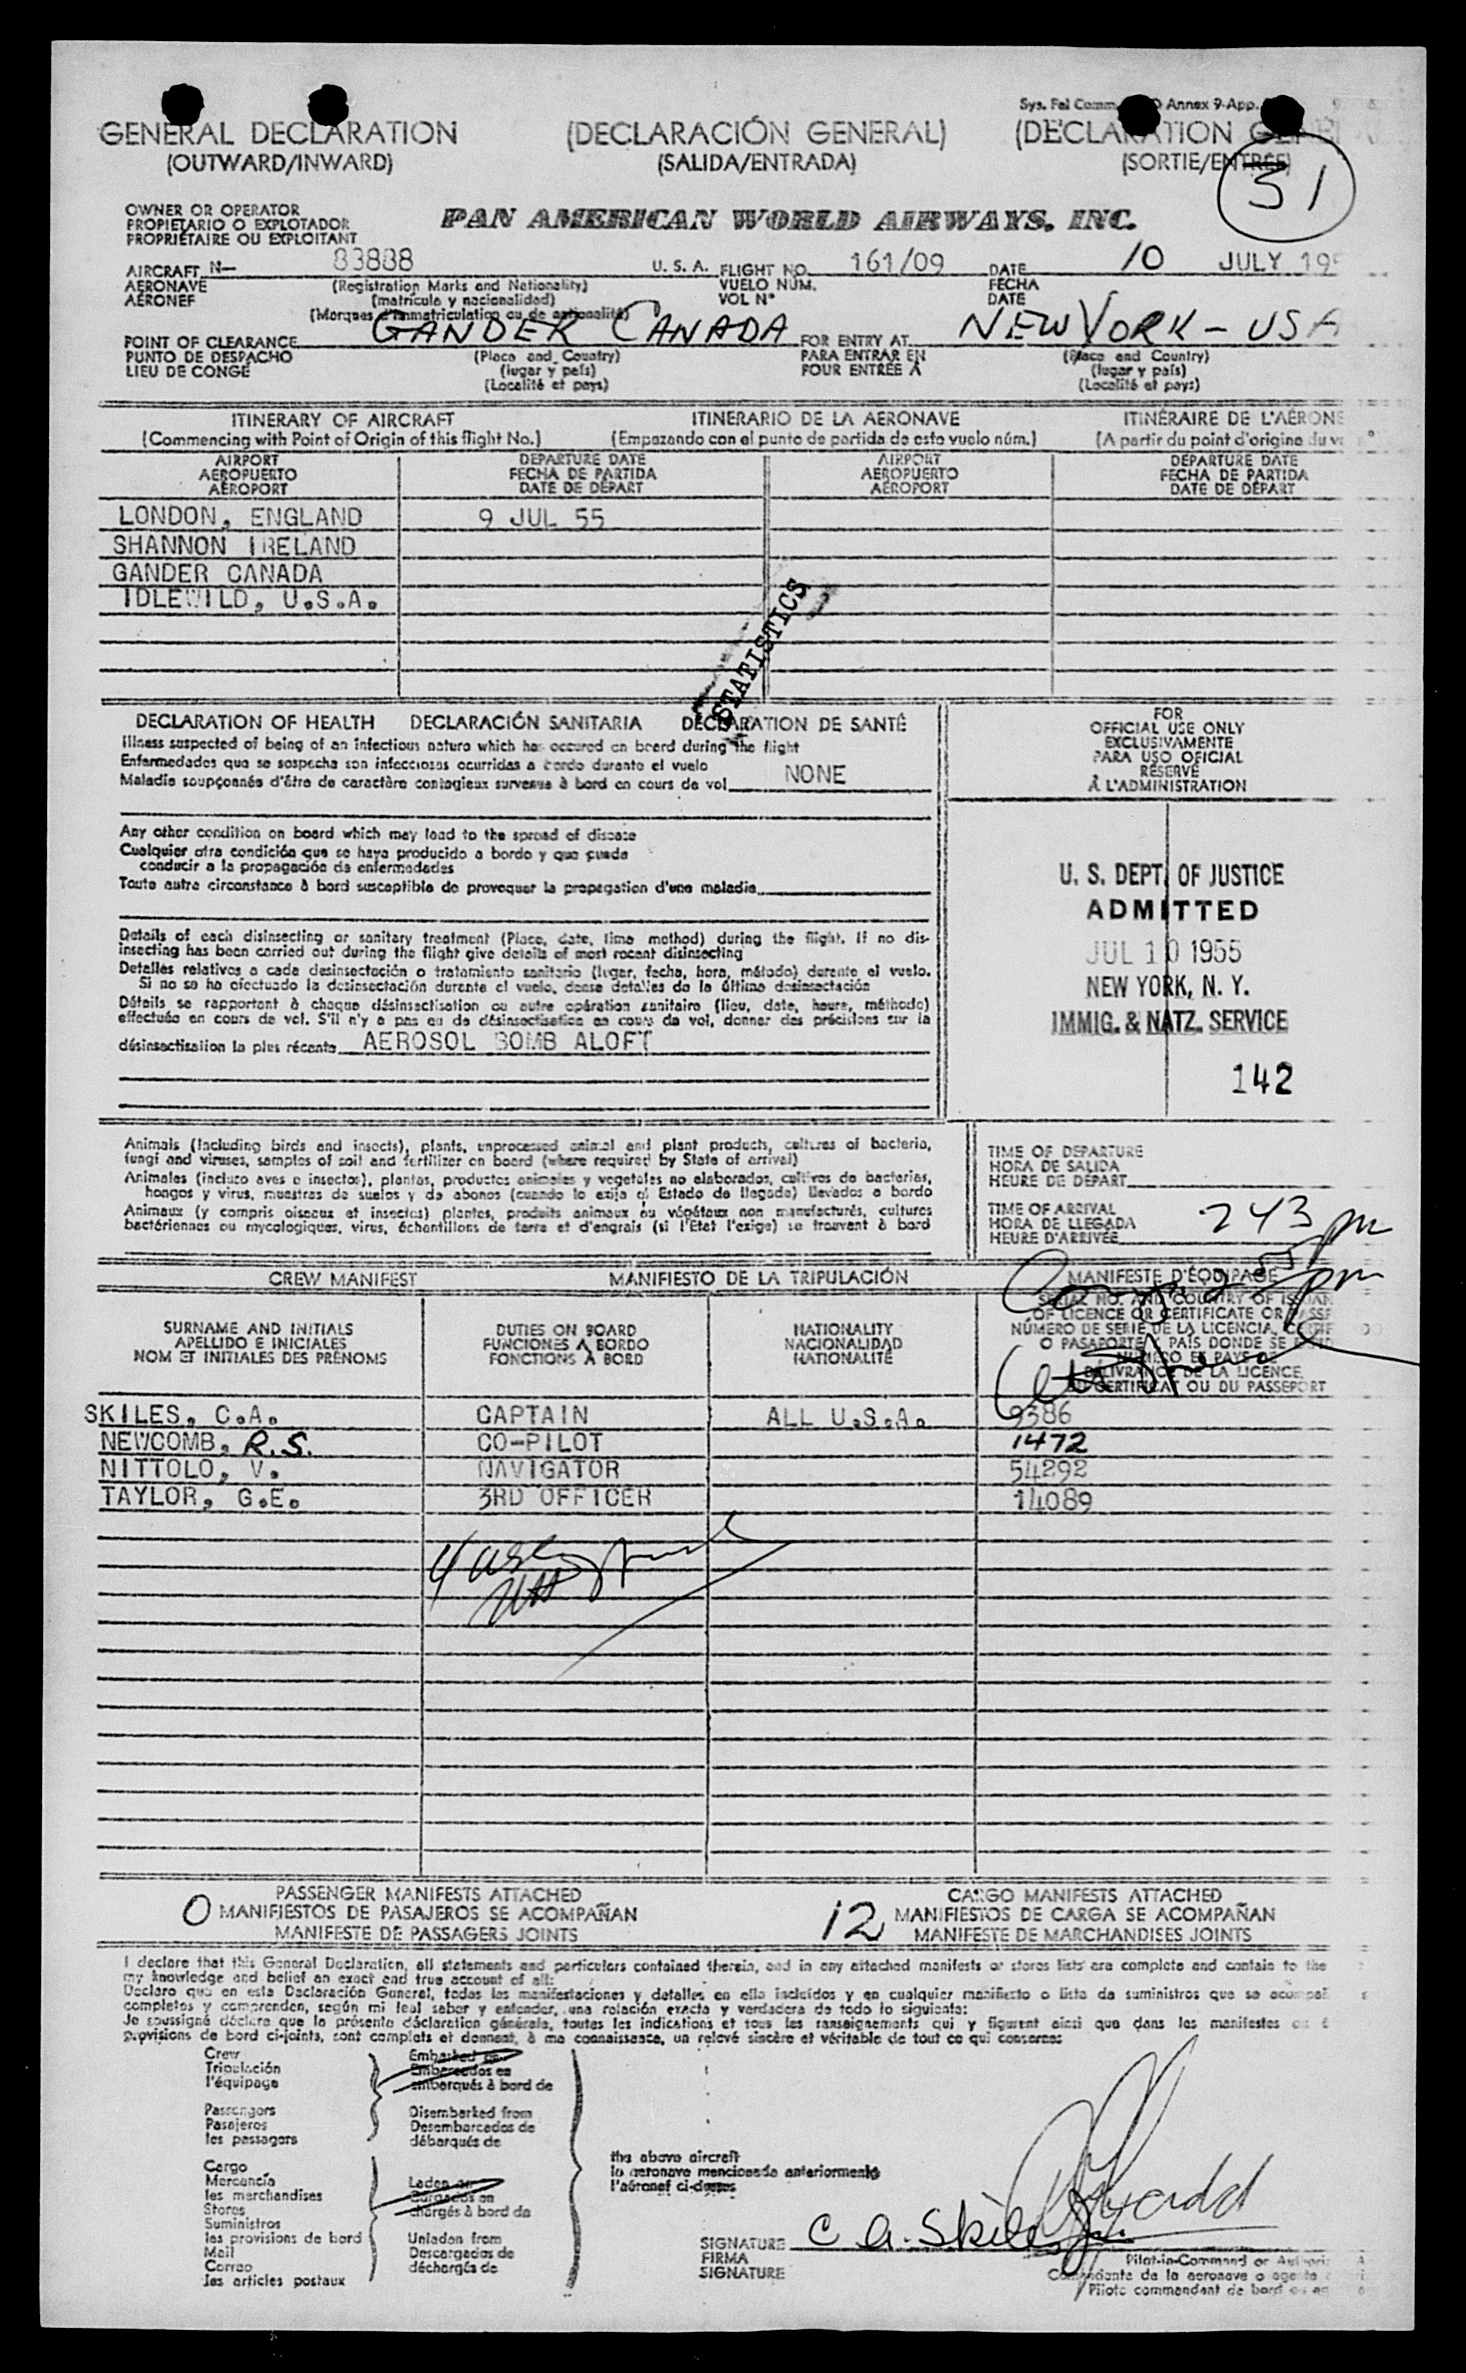 Sys. Fel Comm. Annex 9-App.
GENERAL DECLARATION (DECLARACIÓN GENERAL) (DÉCLARATION
(OUTWARD/INWARD) (SALIDA/ENTRADA) (SORTIE/ENTRÉE)
31
OWNER OR OPERATOR
PROPIETARIO O EXPLOTADOR
PROPRIÉTAIRE OU EXPLOITANT
PAN AMERICAN WORLD AIRWAYS, INC.
AIRCRAFT N— 83888 U. S. A. FLIGHT NO. 161/09 DATE 10 JULY 195
AERONAVE (Registration Marks and Nationality) VUELO NÚM. FECHA
AÉRONEF (matrícula y nacionalidad) VOL N° DATE
(Marques d'immatriculation ou de nationalité)
POINT OF CLEARANCE GANDER CANADA FOR ENTRY AT NEW YORK - USA
PUNTO DE DESPACHO (Place and Country) PARA ENTRAR EN (Place and Country)
LIEU DE CONGÉ (lugar y país) POUR ENTRÉE À (lugar y país)
(Localité et pays) (Localité et pays)
ITINERARY OF AIRCRAFT ITINERARIO DE LA AERONAVE ITINÉRAIRE DE L'AÉRONE
(Commencing with Point of Origin of this flight No.) (Empezando con el punto de partida de este vuelo núm.) (A partir du point d'origine du
AIRPORT DEPARTURE DATE AIRPORT DEPARTURE DATE
AEROPUERTO FECHA DE PARTIDA AEROPUERTO FECHA DE PARTIDA
AÉROPORT DATE DE DÉPART AÉROPORT DATE DE DÉPART
LONDON, ENGLAND 9 JUL 55
SHANNON IRELAND
GANDER CANADA
IDLEWILD, U.S.A.
STATISTICS
DECLARATION OF HEALTH DECLARACIÓN SANITARIA DECLARATION DE SANTÉ
Illness suspected of being of an infectious nature which has occured on board during the flight
Enfermedades que se sospecha son infecciosas ocurridas a bordo durante el vuelo
Maladie soupçonnés d'être de caractère contagieux survenue à bord en cours de vol NONE
Any other condition on board which may lead to the spread of disease
Cualquier otra condición que se haya producido a bordo y que pueda
conducir a la propagación de enfermedades
Toute autre circonstance à bord susceptible de provoquer la propagation d'une maladie
Details of each disinsecting or sanitary treatment (Place, date, time method) during the flight. If no dis-
insecting has been carried out during the flight give details of most recent disinsecting
Detalles relativos a cada desinsectación o tratamiento sanitario (lugar, fecha, hora, método) durante el vuelo.
Si no se ha efectuado la desinsectación durante el vuelo, dense detalles de la última desinsectación
Détails se rapportant à chaque désinsectisation ou autre opération sanitaire (lieu, date, heure, méthode)
effectuée en cours de vol. S'il n'y a pas eu de désinsectisation en cours de vol, donner des précisions sur la
désinsectisation la plus récente AEROSOL BOMB ALOFT
FOR
OFFICIAL USE ONLY
EXCLUSIVAMENTE
PARA USO OFICIAL
RÉSERVÉ
À L'ADMINISTRATION
U. S. DEPT. OF JUSTICE
ADMITTED
JUL 10 1955
NEW YORK, N. Y.
IMMIG. & NATZ. SERVICE
142
Animals (including birds and insects), plants, unprocessed animal and plant products, cultures of bacteria,
fungi and viruses, samples of soil and fertilizer on board (where required by State of arrival)
Animales (incluso aves e insectos), plantas, productos animales y vegetales no elaborados, cultivos de bacterias,
hongos y virus, muestras de suelos y de abonos (cuando lo exija el Estado de llegada) llevados a bordo
Animaux (y compris oiseaux et insectes) plantes, produits animaux ou végétaux non manufacturés, cultures
bactériennes ou mycologiques, virus, échantillons de terre et d'engrais (si l'État l'exige) se trouvant à bord
TIME OF DEPARTURE
HORA DE SALIDA
HEURE DE DÉPART
TIME OF ARRIVAL
HORA DE LLEGADA 243 pm
HEURE D'ARRIVÉE
CREW MANIFEST MANIFIESTO DE LA TRIPULACIÓN MANIFESTE D'ÉQUIPAGE
SURNAME AND INITIALS DUTIES ON BOARD NATIONALITY SERIAL NO. AND COUNTRY OF
APELLIDO E INICIALES FUNCIONES A BORDO NACIONALIDAD OF LICENCE OR CERTIFICATE OR
NOM ET INITIALES DES PRÉNOMS FONCTIONS À BORD NATIONALITÉ NÚMERO DE SERIE DE LA LICENCIA,
O PASAPORTE PAÍS DONDE SE
NUMÉRO ET PAYS DE
DÉLIVRANCE DE LA LICENCE,
CERTIFICAT OU DU PASSEPORT
SKILES, C.A. CAPTAIN ALL U.S.A. 9386
NEWCOMB, R.S. CO-PILOT 1472
NITTOLO, V. NAVIGATOR 54292
TAYLOR, G.E. 3RD OFFICER 14089
PASSENGER MANIFESTS ATTACHED CARGO MANIFESTS ATTACHED
0 MANIFIESTOS DE PASAJEROS SE ACOMPAÑAN 12 MANIFIESTOS DE CARGA SE ACOMPAÑAN
MANIFESTE DE PASSAGERS JOINTS MANIFESTE DE MARCHANDISES JOINTS
I declare that this General Declaration, all statements and particulars contained therein, and in any attached manifests or stores lists are complete and contain to the
my knowledge and belief an exact and true account of all:
Declaro que en esta Declaración General, todas las manifestaciones y detalles en ella incluidos y en cualquier manifiesto o lista de suministros que se
completos y comprenden, según mi leal saber y entender, una relación exacta y verdadera de todo lo siguiente:
Je soussigné déclare que la présente déclaration générale, toutes les indications et tous les renseignements qui y figurent ainsi que dans les manifestes
provisions de bord ci-joints, sont complets et donnent, à ma connaissance, un relevé sincère et véritable de tout ce qui concerne:
Crew Embarked on
Tripulación Embarcados en
l'équipage embarqués à bord de
Passengers Disembarked from
Pasajeros Desembarcados de
les passagers débarqués de
the above aircraft
la aeronave mencionada anteriormente
l'aéronef ci-dessus
Cargo
Mercancía Laden on
les marchandises Cargados en
Stores chargés à bord de
Suministros
les provisions de bord Unladen from
Mail Descargados de
Correo déchargés de
les articles postaux
SIGNATURE C A. Skiles Jr.
FIRMA
SIGNATURE
Pilot-in-Command or
Comandante de la aeronave o agente
Pilote commandant de bord